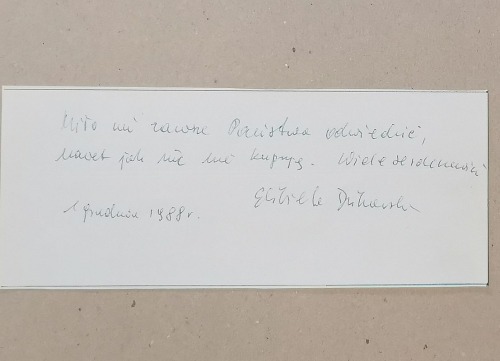 Miło mi zawsze Państwa odwiedzić,
nawet jak nic nie kupuję. Wiele serdeczności
1 grudnia 1988 r. Elżbieta